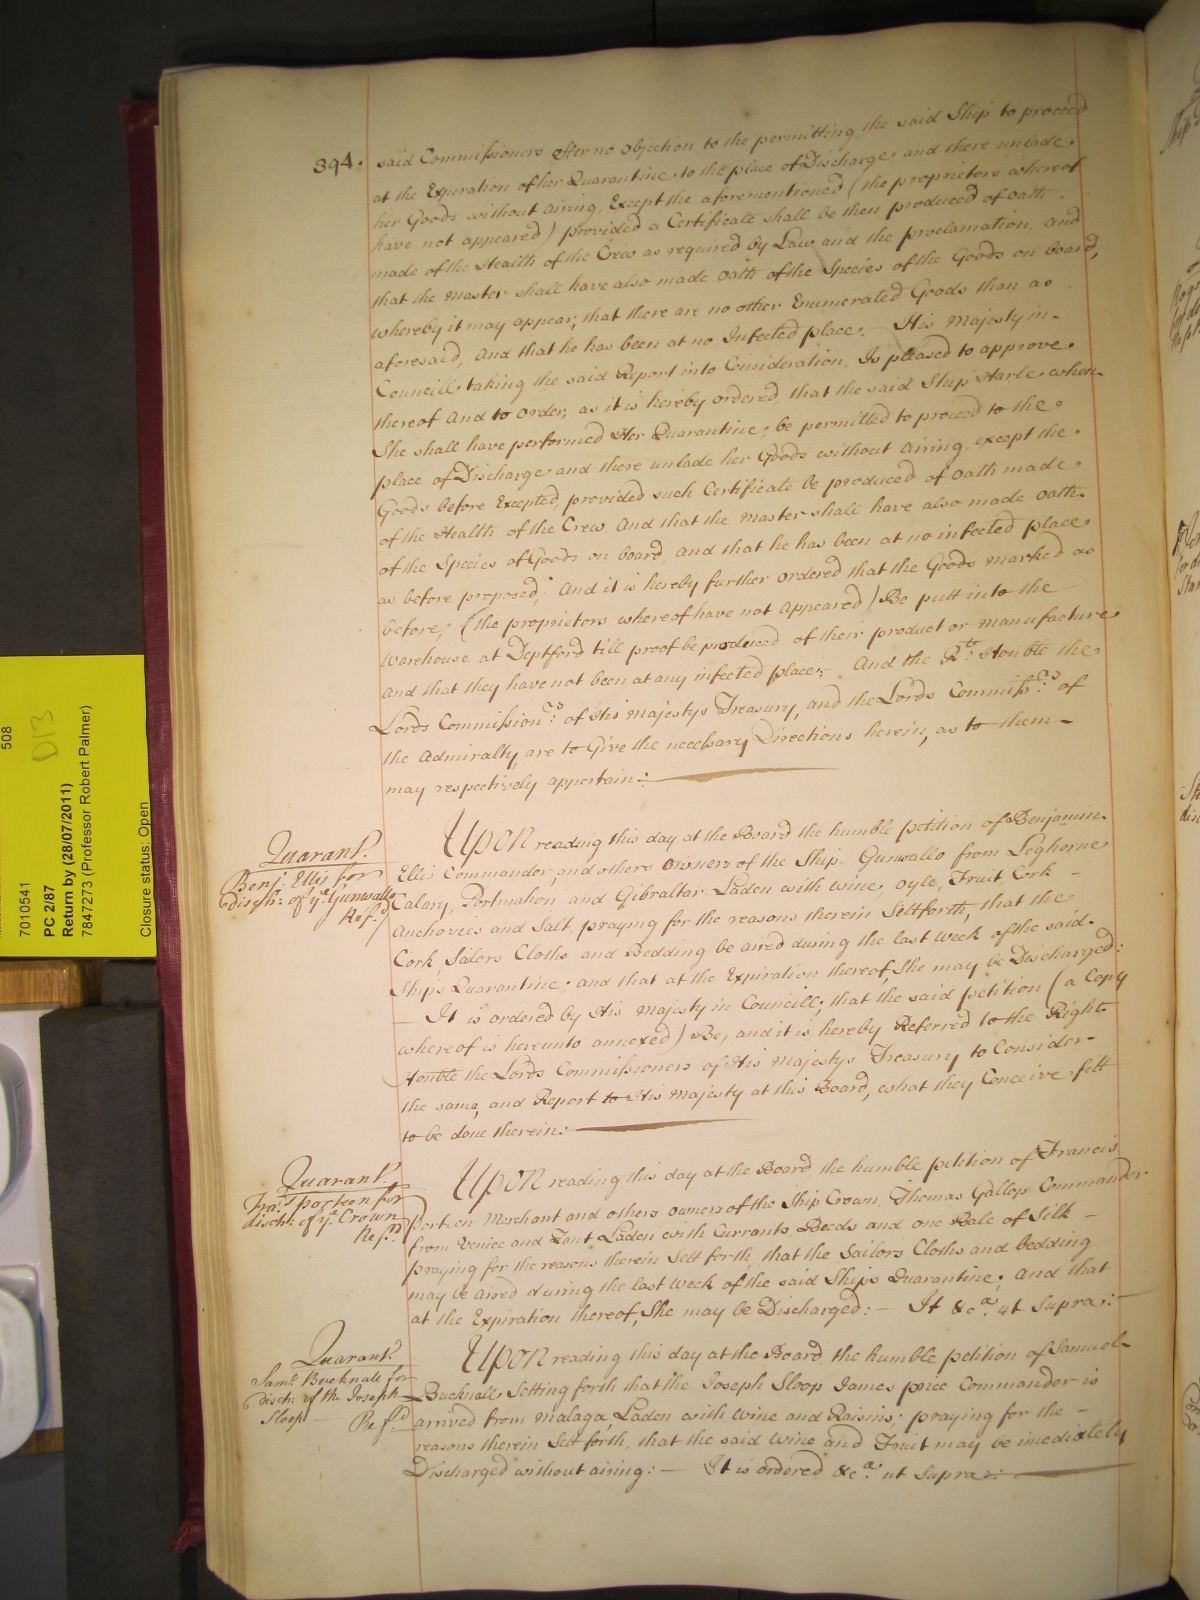 394.
said Commissioners Offer no objection to the permitting the said Ship to proceed
at the Expiration of her Quarantine to the place of Discharge and there unlade
her Goods without airing, Except the aforementioned (the proprietors whereof
have not appeared) provided a Certificate shall be then produced of oath
made of the Health of the Crew as required by Law and the proclamation, and
that the master shall have also made oath of the Species of the Goods on board,
whereby it may appear, that there are no other Enumerated Goods than as
aforesaid, And that he has been at no Infected place: — His Majesty in
Councill taking the said Report into Consideration, Is pleased to approve
thereof And to order, as it is hereby ordered, that the said Ship Harle when
She shall have performed Her Quarantine, be permitted to proceed to the
place of Discharge and there unlade her Goods without airing, except the
Goods before Excepted, provided such Certificate be produced of oath made
of the Health of the Crew And that the master shall have also made oath
of the Species of Goods on board, and that he has been at no infected place
as before proposed; And it is hereby further ordered that the Goods marked as
before, (the proprietors whereof have not appeared) Be putt into the
Warehouse at Deptford till proof be produced of their product or manufacture
and that they have not been at any infected place; And the Rt. Honble the
Lords Commissionrs. of His Majestys Treasury, and the Lords Commissrs. of
the Admiralty are to Give the necessary Directions herein, as to them
may respectively appertain: —
Quarant.
Benj. Ellis for
disch: of ye. Gunwallo
Ref:d
Upon reading this day at the Board the humble petition of Benjamin
Ellis Commander, and others owners of the Ship Gunwallo from Leghorne
Calary, Portmahon and Gibraltar Laden with wine, oyle, Fruit, Cork —
Anchovies and Salt, praying for the reasons therein Settforth, that the
Cork, Sailors Cloths and Bedding be aired during the last Week of the said
Ships Quarantine, and that at the Expiration thereof, She may be Discharged:
— It is ordered by His Majesty in Councill, that the said petition (a Copy
whereof is hereunto annexed) Be, and it is hereby Referred to the Right
Honble the Lords Commissioners of His Majestys Treasury to Consider
the same, and Report to His Majesty at this Board, what they Conceive fitt
to be done therein: —
Quarant.
Fra:s porteen for
disch: of ye. Crown
Ref:d
Upon reading this day at the Board, the humble petition of Francis
Porteen Merchant and others owners of the Ship Crown, Thomas Gallop Commander
from Venice and Zant Laden with Currants, Beeds and one Bale of Silk —
praying for the reasons therein Sett forth, that the Sailors Cloths and bedding
may be aired during the last Week of the said Ships Quarantine; And that
at the Expiration thereof, She may be Discharged: — It &ca. ut Supra: —
Quarant.
Saml. Bucknall for
Disch: of the Joseph
Sloop — Ref:d
Upon reading this day at the Board, the humble petition of Samuel
Bucknall, Setting forth that the Joseph Sloop James price Commander is
arrived from Malaga, Laden with Wine and Raisins; praying for the —
reasons therein Sett forth, that the said Wine and Fruit may be imediately
Discharged without airing: — It is ordered &ca. ut Supra: —
508
D13
7010541
PC 2/87
Return by (28/07/2011)
7847273 (Professor Robert Palmer)
Closure status: Open